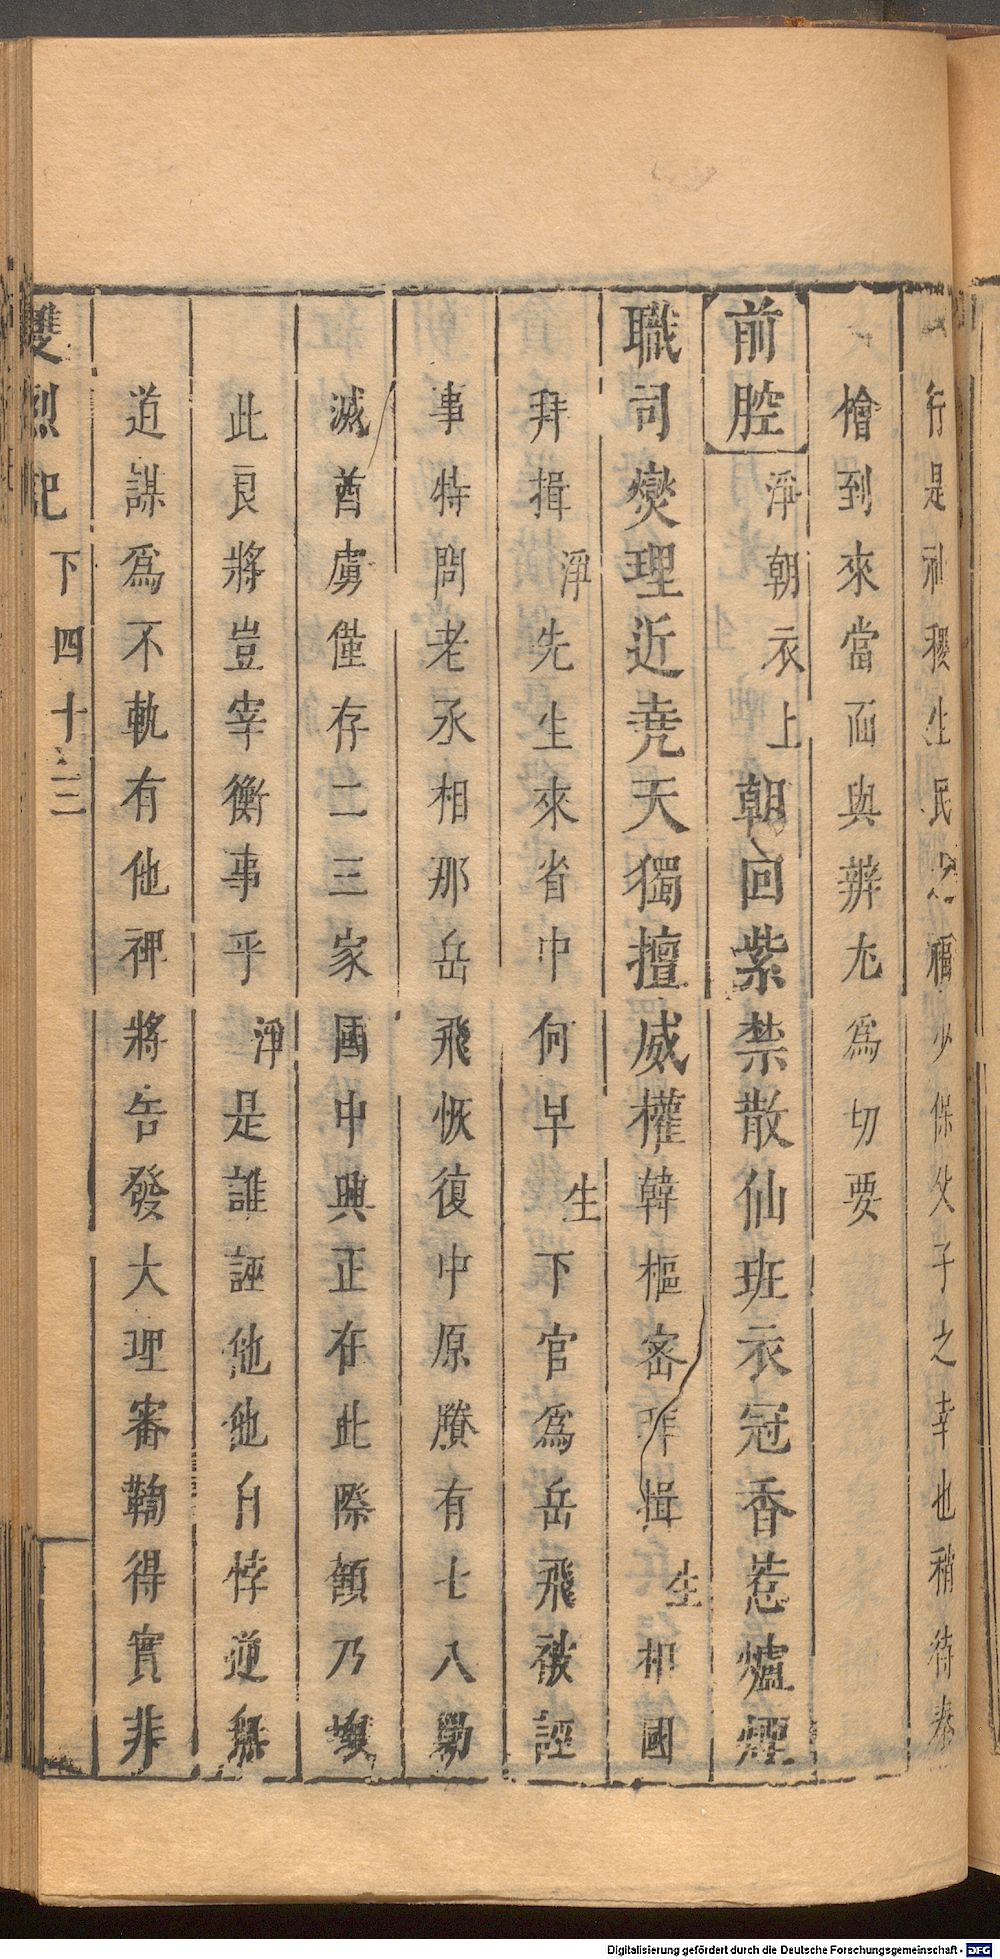 行是社稷生民之福少保父子之幸也稍待秦
檜到來當面與辨尢爲切要
前腔 淨朝衣上朝回紫禁散仙班衣冠香惹爐煙
職司爕理近堯天獨擅威權韓樞密拜揖生相國
拜揖淨先生來省中何早生下官爲岳飛被誣
事特問老丞相那岳飛恢復中原賸有七八勦
滅酋虜僅存二三家國中興正在此際顧乃
此良將豈宰衡事乎淨是誰誣他他自悖逆無
道謀爲不軌有他裨將告發大理審鞫得實非
雙烈記 下四十三
Digitalisierung gefördert durch die Deutsche Forschungsgemeinschaft - DFG